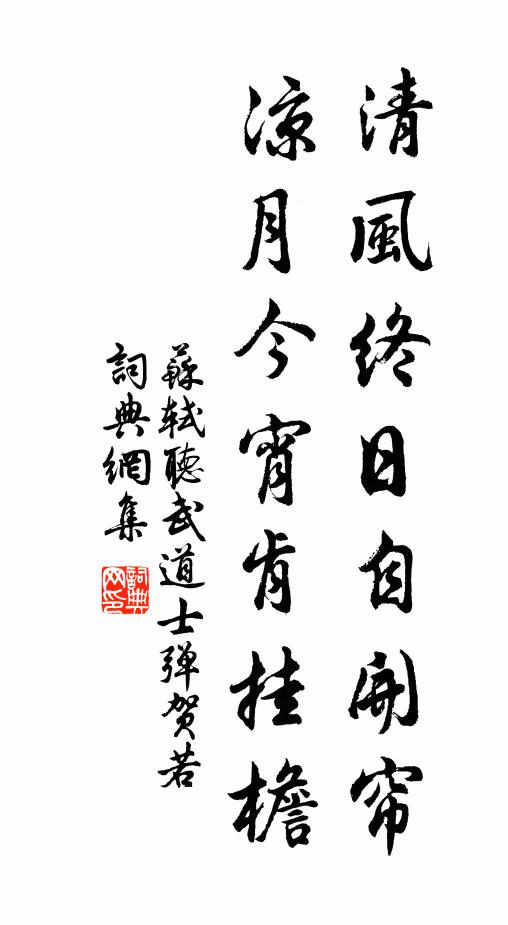 清風終日自開帘
涼月今宵肯挂檐
蘇軾聽武道士弹贺若
詞典網集
詞典网印